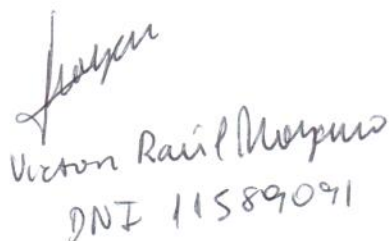 Victor Raúl Moyano
DNI 11589091